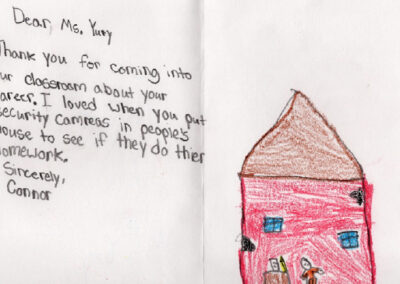 Dear, Ms. Yury
Thank you for coming into
ur classroom about your
areer. I loved when you put
security camreas in people's
ouse to see if they do thier
omework.
Sincerely,
Connor